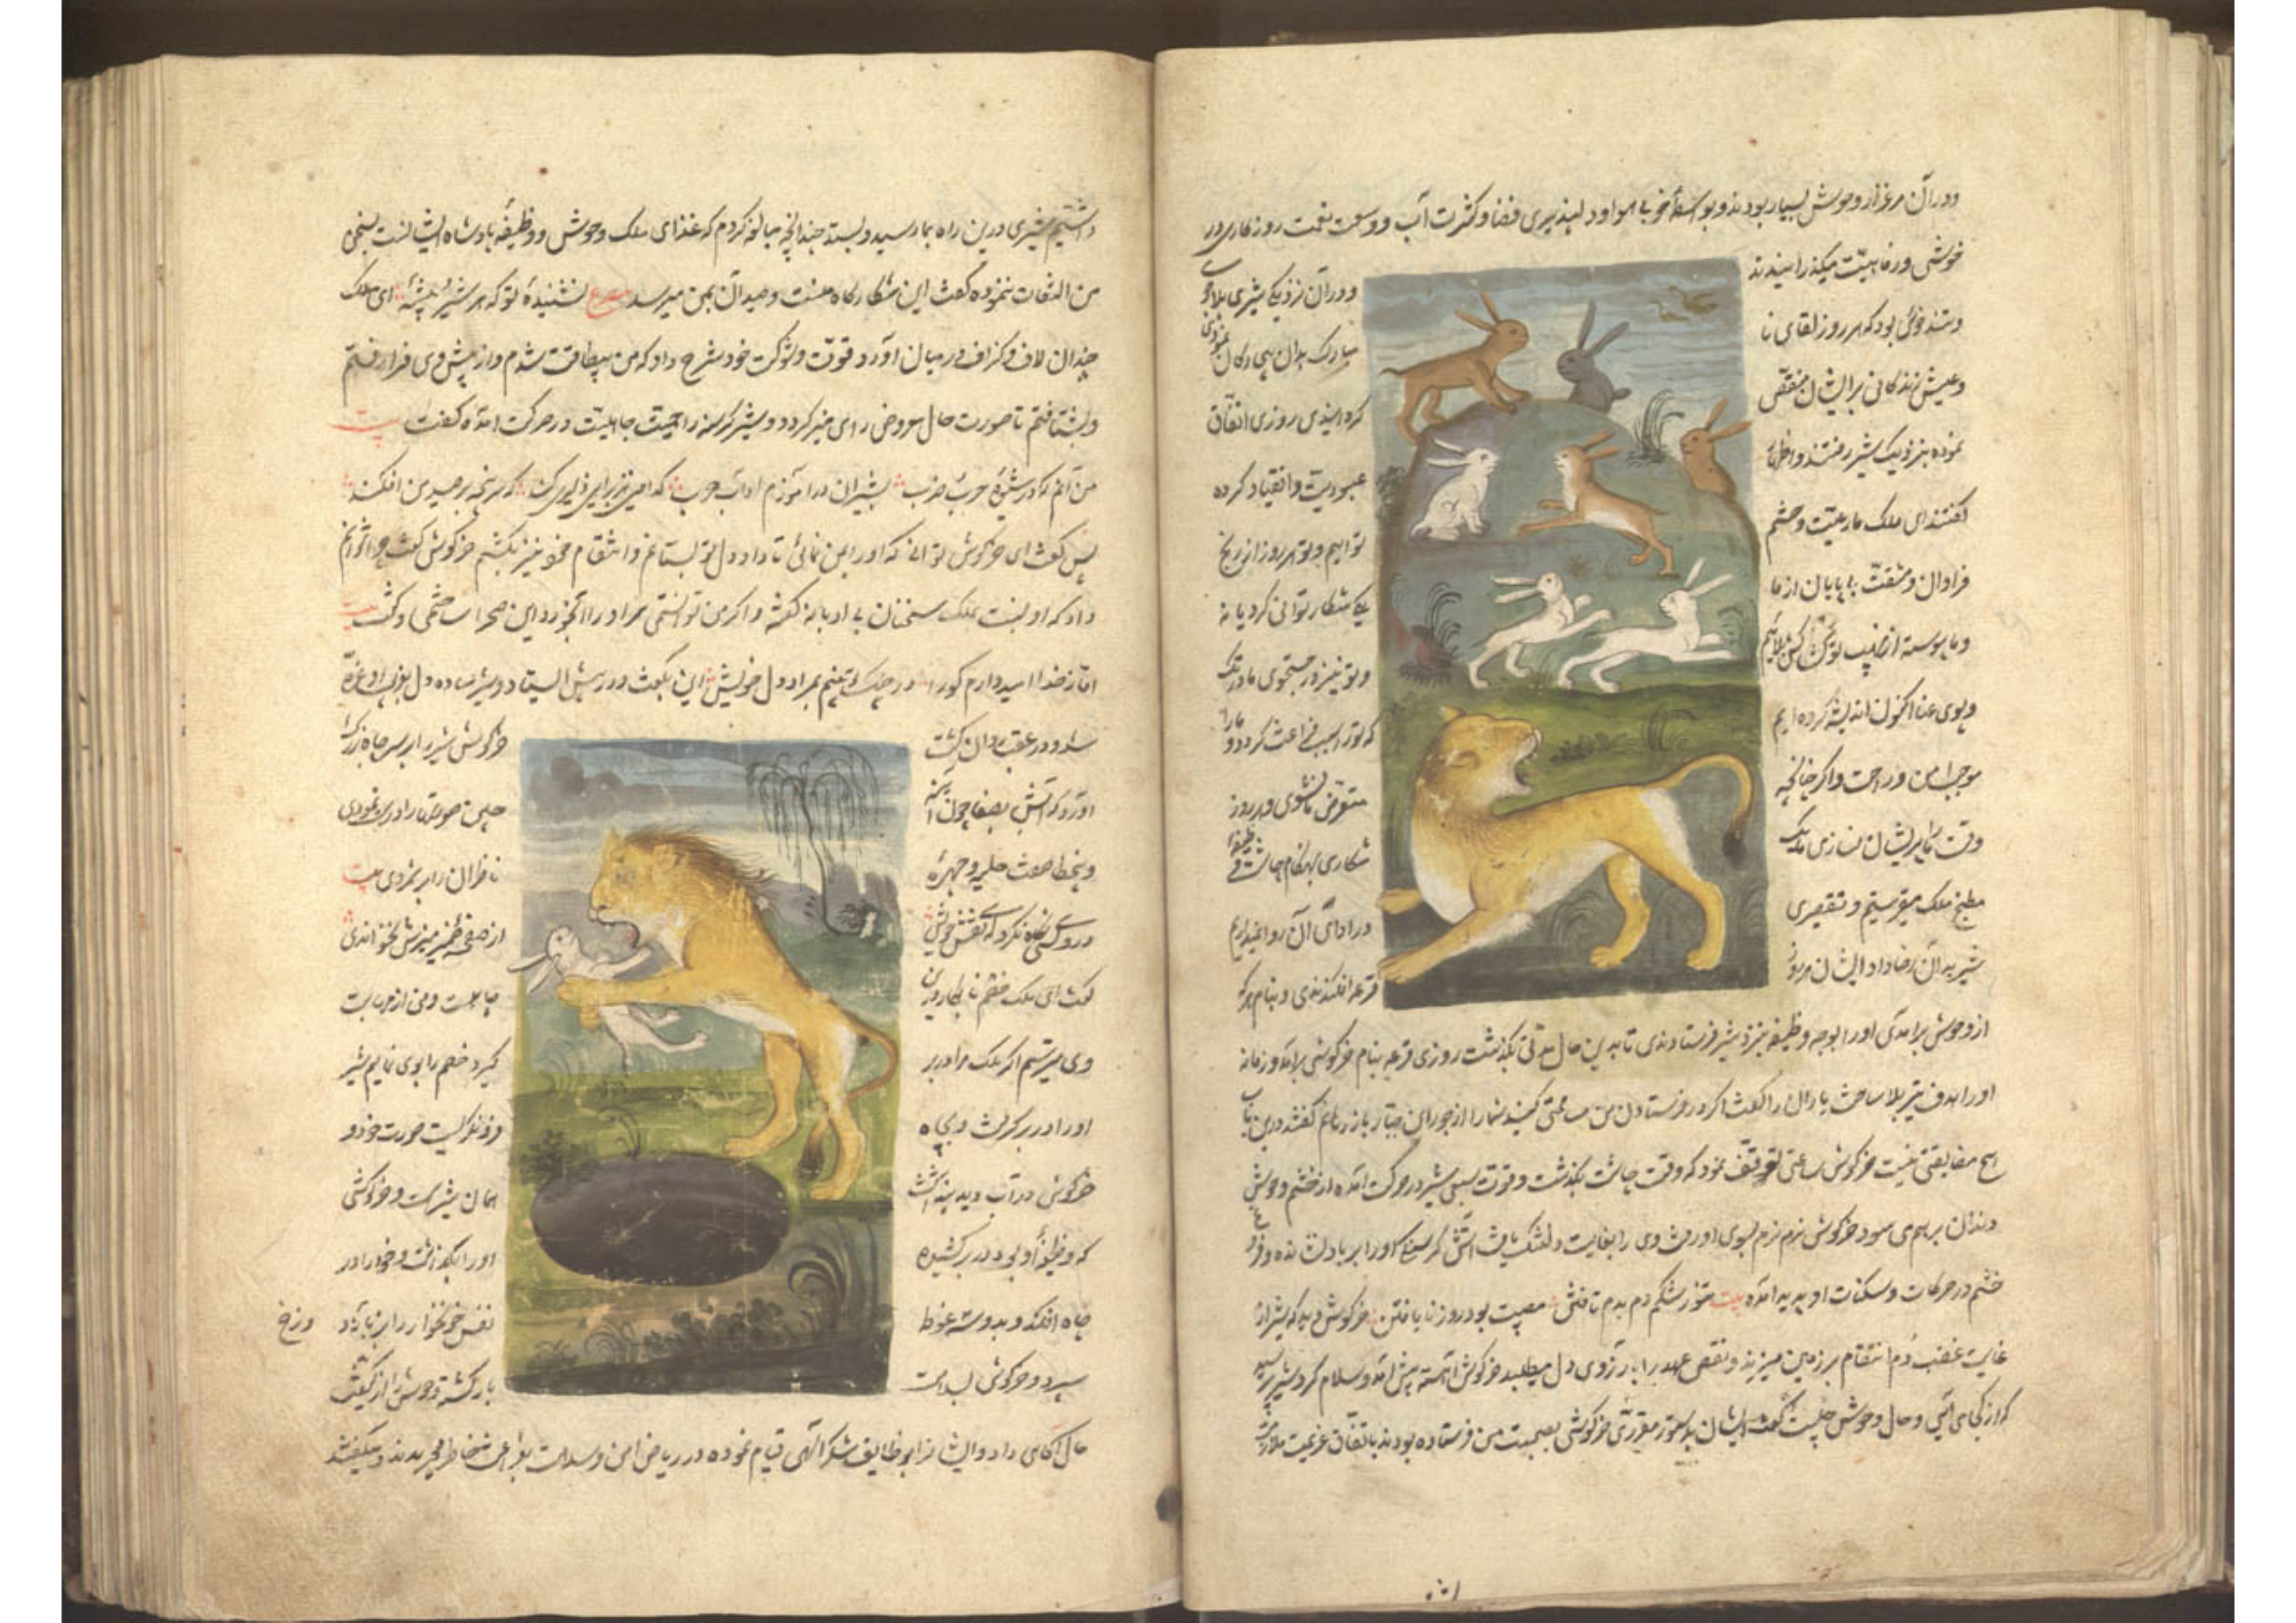 ودران مرغزار وحوش بسیار بودند و بواسطهٔ خوبی هوا و دلپذیری فضا و کثرت آب و وسعت نعمت روزکاری در
خوشی و رفاهیت میکذرانیدند
ودران نزدیکی شیری بلاجوی
و تندخوئی بود که هر روز لقای نا
مبارک بدان بیچارکان نمودی
و عیش زندکانی بر ایشان منغص
کردانیدی روزی اتفاق
نموده بنزدیک شیر رفتند و اظهار
عبودیت و انقیاد کرده
کفتند ای ملک ما رعیت و حشم
توایم و تو هر روز از رنج
فراوان و مشقت بی پایان از ما
یکی شکار توانی کرد یا نه
و ما پیوسته از نهیب تو در کشاکش بلائیم
و تو نیز در جستجوی ما در تک
و پوی عنا اکنون اندیشه کرده ایم
که ترا سبب فراغت کردد و ما را
موجب امن و راحت و اکر چنانچه
متعرض ما نشوی و هر روز
وقت ما را پریشان نسازی ما یک
شکاری بهنکام چاشت وظیفهٔ
مطبخ ملک میفرستیم و تقصیری
در ادای آن روا نمیداریم
شیر بدان رضا داد ایشان هر روز
قرعه افکندندی و بنام هر که
از وحوش برآمدی اورا بوجه وظیفه بنزد شیر فرستادندی تا بدین حال مدتی بکذشت روزی قرعه بنام خرکوشی برآمد و زمانه
اورا هدف تیر بلا ساخت یاران را کفت اکر در فرستادن من مسامحتی کنید شما را از جور این جبار باز رهانم کفتند درین باب
هیچ مضایقتی نیست خرکوش ساعتی توقف نمود که وقت چاشت بکذشت و قوت سبعی شیر در حرکت آمده از خشم وحوش
دندان بر هم می سود خرکوش نرم نرم بسوی او رفت وی را بغایت دلتنک یافت آتش کرسنکی اورا بر باد نشانده و فروغ
خشم در حرکات و سکنات او پدید آمده بیت تنور شکم دم بدم تافتن مصیبت بود روز نایافتن خرکوش دید که شیر از
غایت غضب دم انتقام بر زمین میزند و نقض عهد را بآرزوی دل میطلبد خرکوش آهسته پیش آمد و سلام کرد شیر پرسید
که از کجا می آیی و حال وحوش چیست کفت ایشان بدستور مقرر خرکوشی بصحبت من فرستاده بودند باتفاق عزیمت ملازمت
داشتیم شیری درین راه بما رسید و بستد چندانچه مبالغه کردم که غذای ملک وحوش و وظیفهٔ پادشاه ایشانست بسخن
من التفات ننموده کفت این شکارکاه منست و صید آن بمن میرسد مصرع نشنیدهٔ تو که هر شیر و بیشهٔ ای ملک
چندان لاف و کزاف در میان آورد و قوت و شوکت خود شرح داد که من بیطاقت شدم و از پیش وی فرار رفتم
و بشتافتم تا صورت حال معروض رای منیر کردد و شیر کرسنه را حمیت جاهلیت در حرکت آمده کفت بیت
من آنم که در شیوهٔ حرب و ضرب بشیران درآموزم آداب حرب که امین هزبر این دلیری کند که سرپنجه بر صید من افکند
پس کفت ای خرکوش توانی که اورا بمن نمائی تا داد دل تو بستانم و انتقام خود نیز بکشم خرکوش کفت چرا نتوانم
داد که او نسبت بملک سخنان بی ادبانه کفته و اکر من توانستمی سر اورا آبخور ددان صحرا ساختمی و کفت بیت
اما ز خدا امیدوارم کورا در چنک تو بینم بمراد دل خویش این بکفت و در پیش ایستاد و شیر ساده دل بفریب او غره
شد و در عقب روان کشت
خرکوش شیر را بر سر چاه بزرک
آورد که آبش بصفا چون آینهٔ
چین صورتها را درست نمودی
و بیخطا صفت حلیه و چهرهٔ
ناظران را بر شمردی بیت
در وی نکاه نکرد کسی نقش خویش
از صفحهٔ ضمیر منیرش نخواندی
کفت ای ملک خصم نابکار درین
چاهست و من از مهابت
وی میترسم اکر ملک مرا در بر
کیرد خصم را بوی نمایم شیر
اورا در بر کرفت و بچاه
فرو نکریست صورت خود و
خرکوش در آب دید پنداشت
همان شیرست و خرکوشی
که وظیفهٔ او بود در بر کشیده
اورا بکذاشت و خود را در
چاه افکند و بدو سه غوطه
نفس خونخوار را بزبانیهٔ دوزخ
سپرد و خرکوش بسلامت
بازکشته وحوش را از کیفیت
حال آکاهی داد و ایشان بوظایف شکر الهی قیام نموده در ریاض امن و سلامت بفراغ خاطر میچریدند و میکفتند